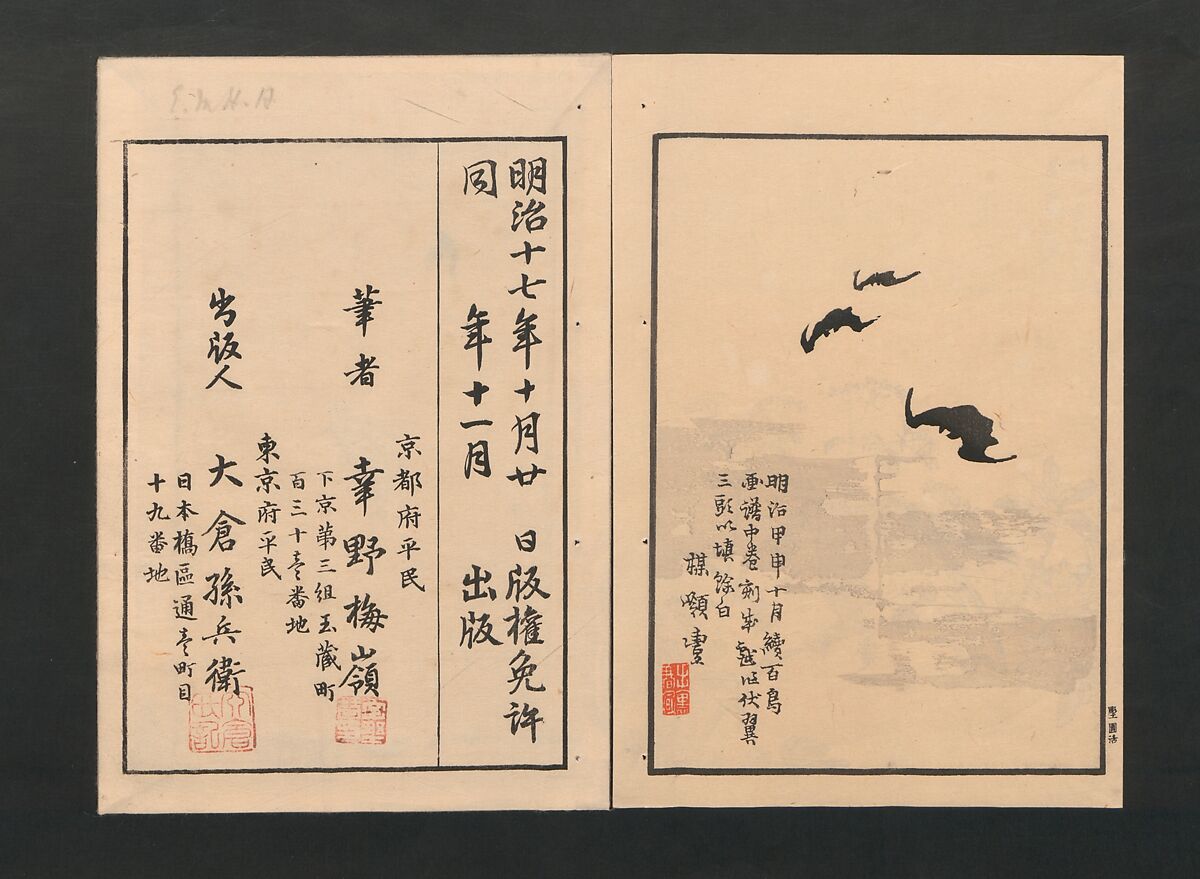 明治甲申十月續百鳥
画譜中巻刻成戯作伏翼
三頭以填餘白
楳嶺
明治十七年十月廿 日版權免許
同 年十一月 出版
京都府平民
筆者 幸野梅嶺
下京第三組玉蔵町
百三十壱番地
東京府平民
出版人 大倉孫兵衛
日本橋區通壱町目
十九番地